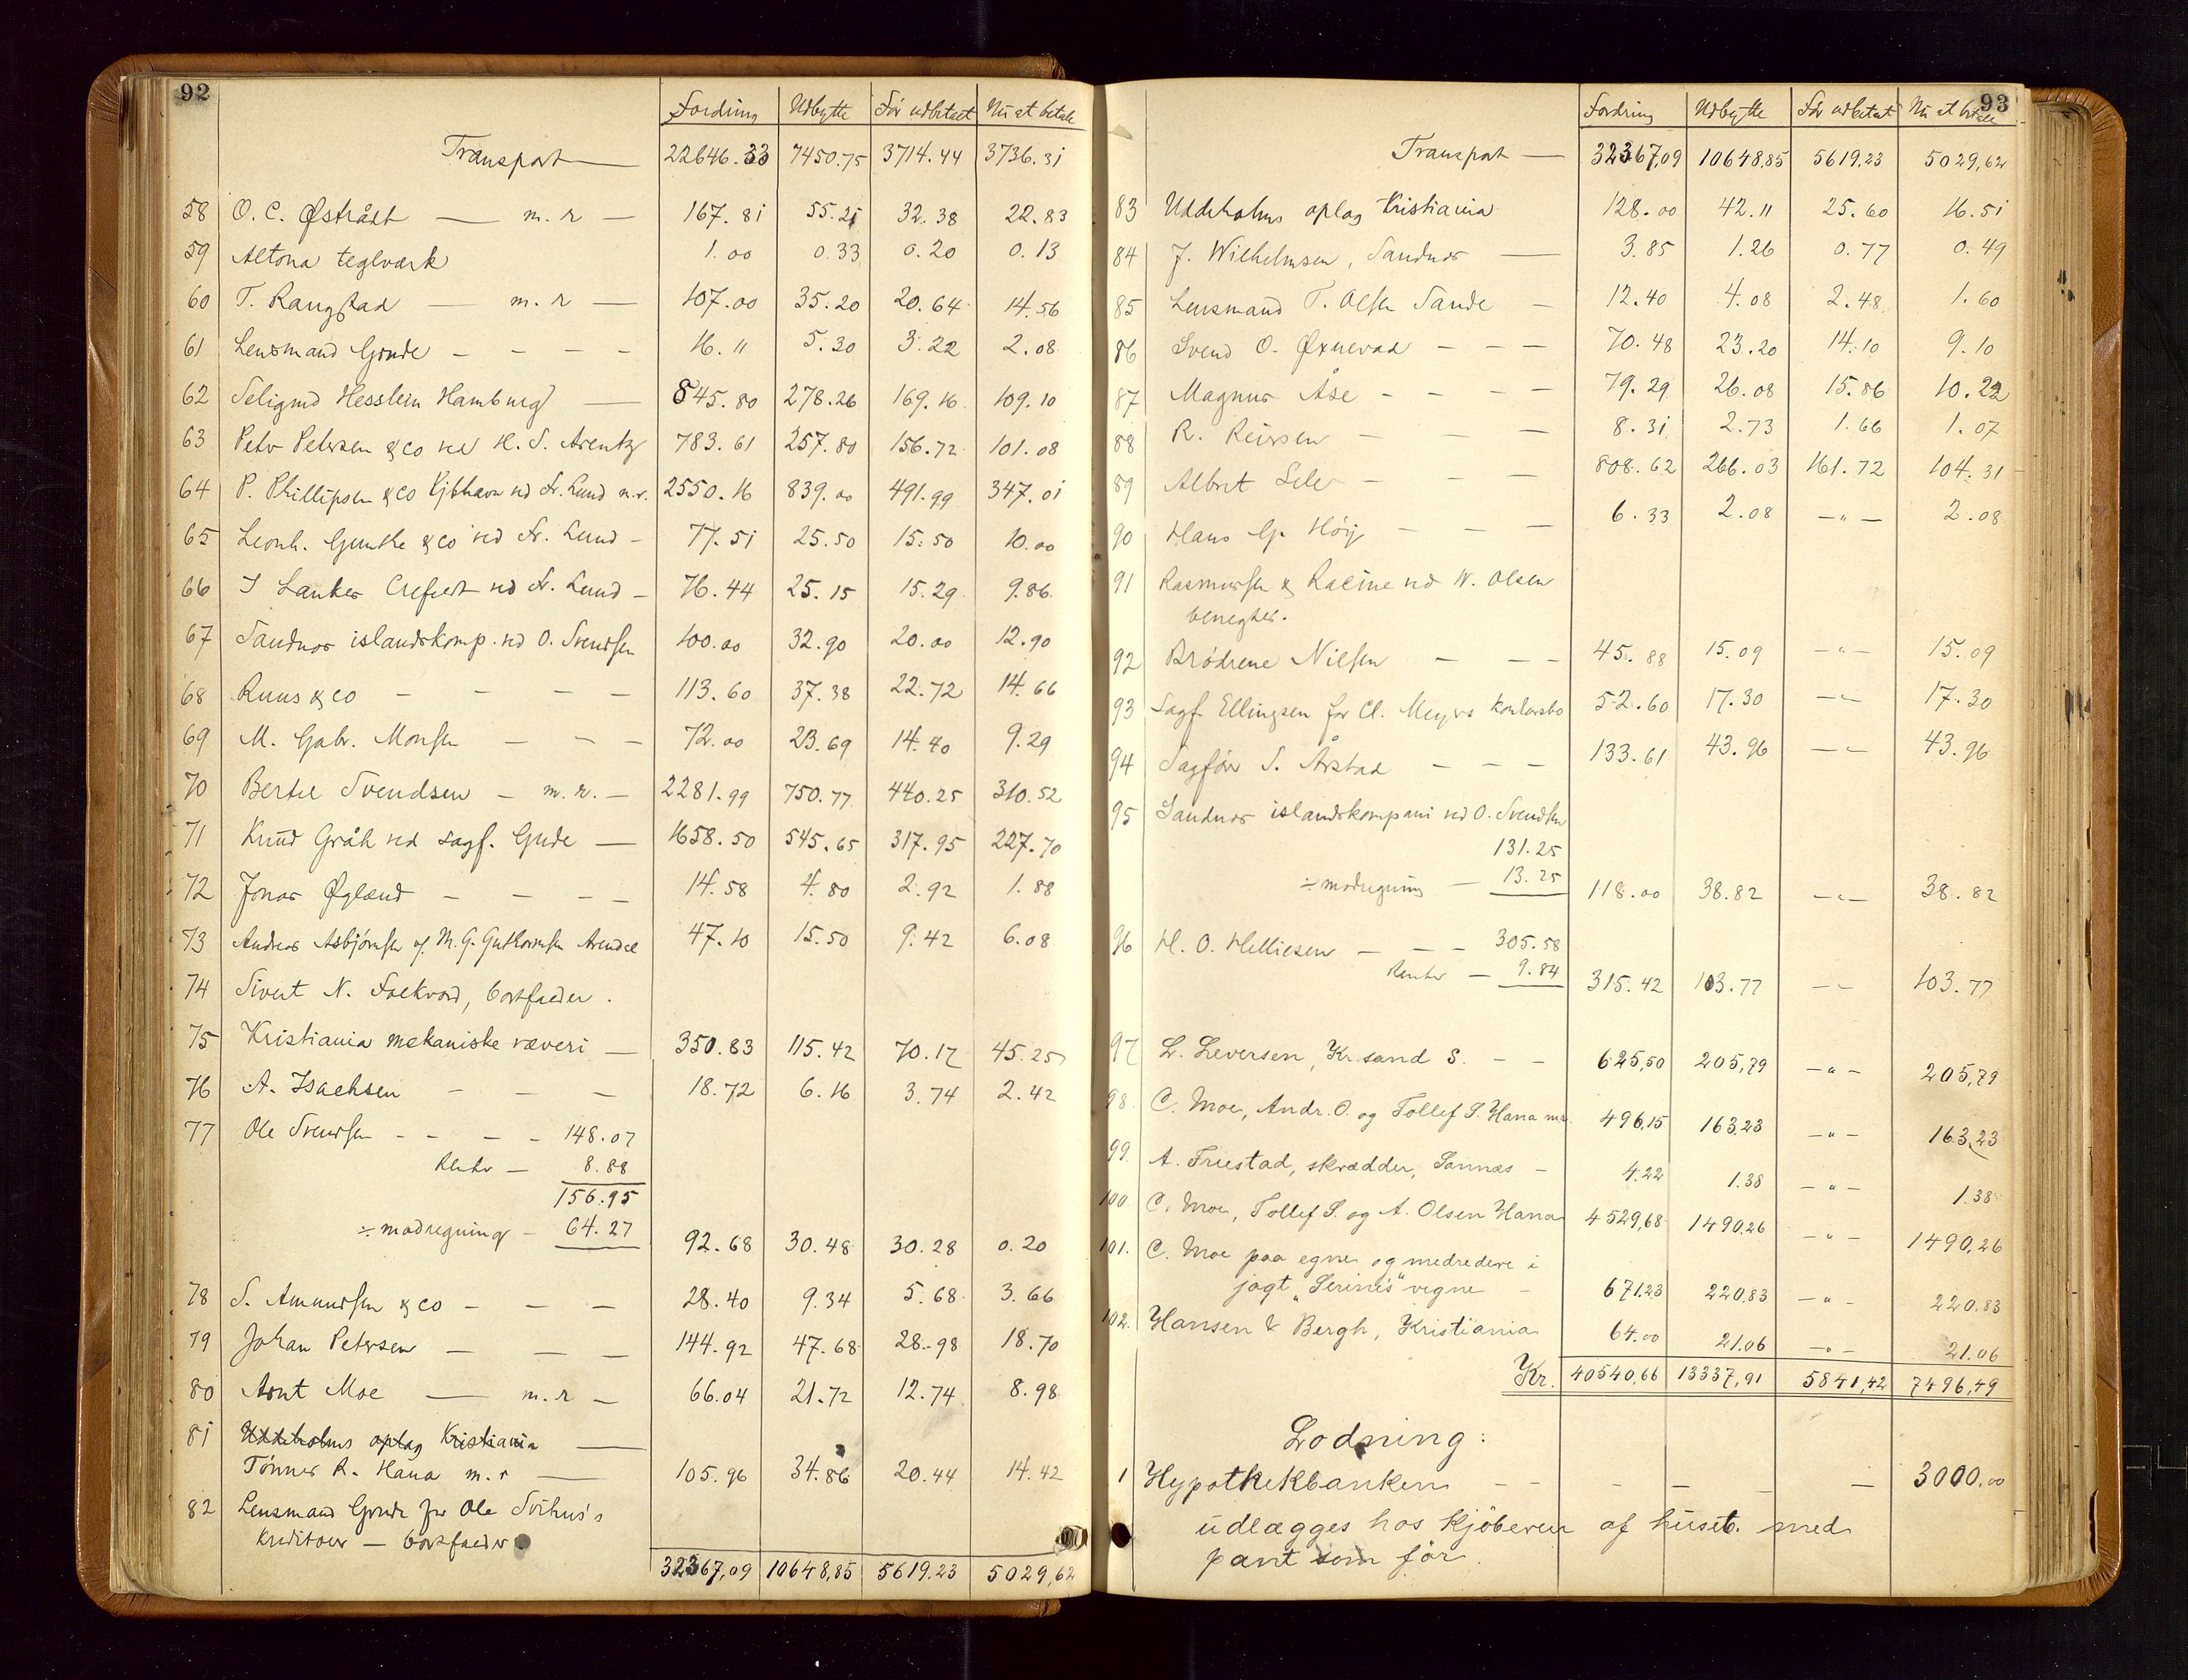 92
Fordring Udbytte Før udbetalt Nu at betale
Transport — 22646.33 7450.75 3714.44 3736.31
58 O. C. Østrådt — m. r — 167.81 55.21 32.38 22.83
59 Altona teglværk 1.00 0.33 0.20 0.13
60 T. Rangstad — m. r — 107.00 35.20 20.64 14.56
61 Lensmand Grude - - - - 16.11 5.30 3.22 2.08
62 Seligmd Hesslein Hamburg — 845.80 278.26 169.16 109.10
63 Petr Petersen & co ved H. S. Arentz 783.61 257.80 156.72 101.08
64 P. Phillipsen & co Kjbhavn ved Fr. Lund m.r. 2550.16 839.00 491.99 347.01
65 Leonh. Gunthe & co ved Fr. Lund - 77.51 25.50 15.50 10.00
66 I Lanker Crefeert ved Fr. Lund - 76.44 25.15 15.29 9.86
67 Sandnes islandskomp. ved O. Svendsen 100.00 32.90 20.00 12.90
68 Ruus & co - - - - 113.60 37.38 22.72 14.66
69 M. Gabr. Monsen - - - 72.00 23.69 14.40 9.29
70 Bertel Svendsen - m. r. - 2281.99 750.77 440.25 310.52
71 Knud Gråh ved sagf. Gude — 1658.50 545.65 317.95 227.70
72 Jonas Øglænd - - - - 14.58 4.80 2.92 1.88
73 Andreas Asbjørnsen af M. G. Guthormsen Arendal 47.10 15.50 9.42 6.08
74 Sivert N. Folkvord, bortfalder.
75 Kristiania mekaniske væveri — 350.83 115.42 70.17 45.25
76 A. Isachsen - - - 18.72 6.16 3.74 2.42
77 Ole Svendsen - - - - 148.07
Renter — 8.88
156.95
÷ modregning - 64.27 92.68 30.48 30.28 0.20
78 S. Amundsen & co - - - 28.40 9.34 5.68 3.66
79 Johan Petersen - - - 144.92 47.68 28.98 18.70
80 Arnt Moe — m. r — 66.04 21.72 12.74 8.98
81 Uddeholms oplag Kristiania —
Tønnes R. Hana m. r — 105.96 34.86 20.44 14.42
82 Lensmand Grude for Ole Sørhus's
kreditorer — bortfalder
32367,09 10648,85 5619.23 5029,62
93
Fordring Udbytte Før udbetalt Nu at betale
Transport — 32367,09 10648,85 5619,23 5029,62
83 Uddeholms oplag Kristiania 128.00 42.11 25.60 16.51
84 J. Wilhelmsen, Sandnes — 3.85 1.26 0.77 0.49
85 Lensmand T. Olsen Sande - 12.40 4.08 2.48 1.60
86 Svend O. Øxnevad - - - 70.48 23.20 14.10 9.10
87 Magnus Åse - - - - 79.29 26.08 15.86 10.22
88 R. Reiersen - - - 8.31 2.73 1.66 1.07
89 Albret Lele - - - 808.62 266.03 161.72 104.31
90 Hans G. Høiy - - - 6.33 2.08 -"- 2.08
91 Rasmussen & Racine ved W. Olsen
benegtes.
92 Brødrene Nilsen - - - 45.88 15.09 -"- 15.09
93 Sagf. Ellingsen for Cl. Meyers konkursbo 52.60 17.30 -"- 17.30
94 Sagfører S. Årstad - - - 133.61 43.96 -"- 43.96
95 Sandnes islandskompani ved O. Svendsen
131.25
÷ modregning — 13.25 118.00 38.82 -"- 38.82
96 H. O. Helliesen - - - 305.58
Renter - 9.84 315.42 103.77 -"- 103.77
97 L. Leversen, Kr.sand S. - - 625,50 205,79 -"- 205,79
98. C. Moe, Andr. O. og Tollef S. Hana m.r. 496,15 163,23 -"- 163,23
99. A. Friestad, skrædder, Sannæs - 4.22 1.38 -"- 1.38
100 C. Moe, Tollef S. og A. Olsen Hana 4529,68 1490,26 -"- 1490,26
101. C. Moe paa egne og medredere i
jagt „Serines" vegne - 671.23 220,83 -"- 220,83
102. Hansen & Bergh, Kristiania 64.00 21.06 -"- 21.06
Kr. 40540,66 13337,91 5841,42 7496,49
Lodning:
1 Hypothekbanken - - - - - - 3000.00
udlægges hos kjøberen af huset. med
pant som før.